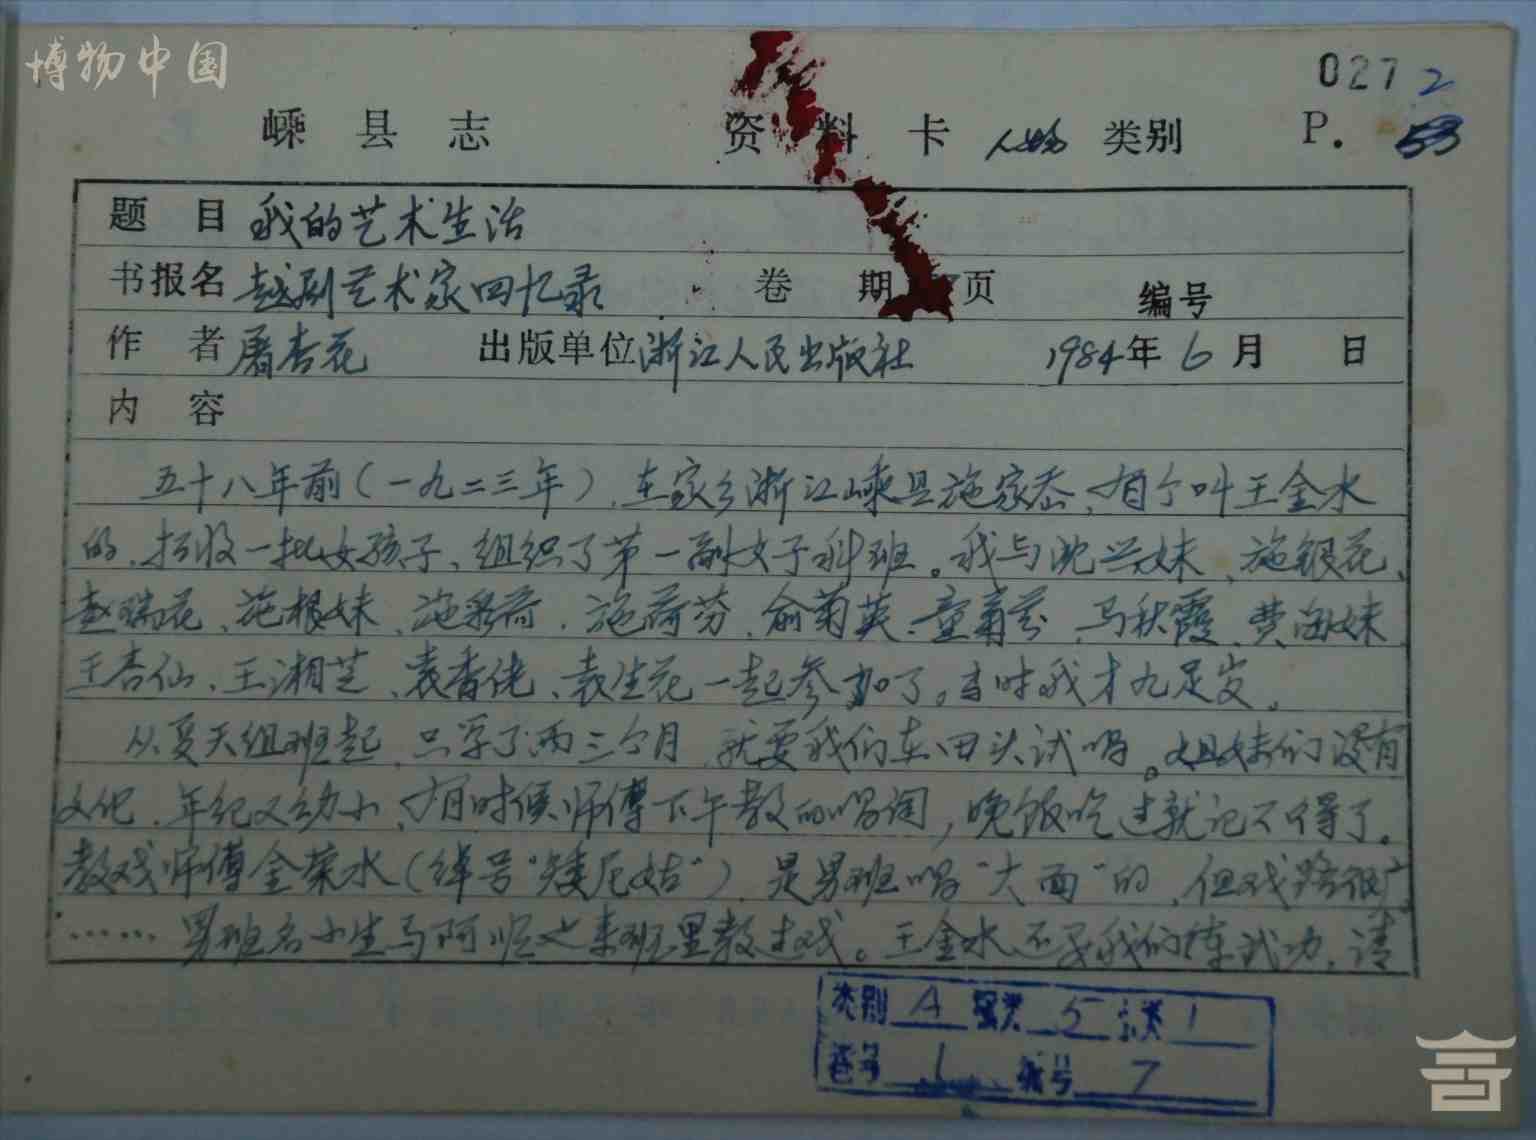 博物中国
027 2
嵊县志 资料卡 人物 类别 P. 53
题目 我的艺术生活
书报名 越剧艺术家回忆录 卷 期 页 编号
作者 屠杏花 出版单位 浙江人民出版社 1984年6月 日
内容
五十八年前(一九二三年),在家乡浙江嵊县施家岙,有个叫王金水
的,招收一批女孩子,组织了第一副女子科班。我与沈兴妹、施银花、
赵瑞花、施根妹、施彩荷、施荷芬、俞菊英、童菊芬、马秋霞、费海妹、
王杏仙、王湘芝、袁香佬、袁生花一起参加了。当时我才九足岁。
从夏天组班起,只学了两三个月,就要我们在田头试唱。姐妹们没有
文化,年纪又幼小,有时候师傅下午教的唱词,晚饭吃过就记不得了。
教戏师傅金荣水(绰号"矮尼姑"),是男班唱"大面"的,但戏路很广
……男班名小生马阿顺也来班里教过戏。王金水还要我们练武功,请
类别 A 属类 5 小类 1
卷号 1 编号 7